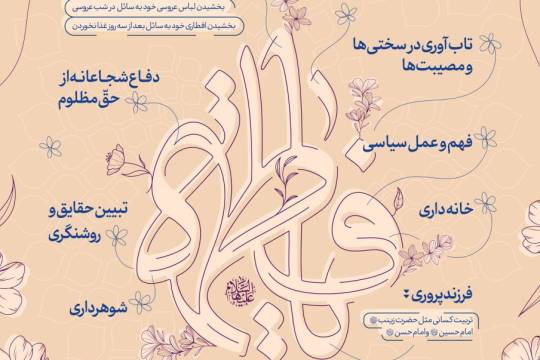 بخشیدن لباس عروسی خود به سائل در شب عروسی
بخشیدن افطاری خود به سائل بعد از سه روز غذا نخوردن
تاب‌آوری در سختی‌ها
و مصیبت‌ها
دفاع شجاعانه از
حقّ مظلوم
فهم و عمل سیاسی
خانه‌داری
تبیین حقایق و
روشنگری
فاطمه
سلام الله علیها
شوهرداری
فرزندپروری
تربیت کسانی مثل حضرت زینب
امام حسین و امام حسن